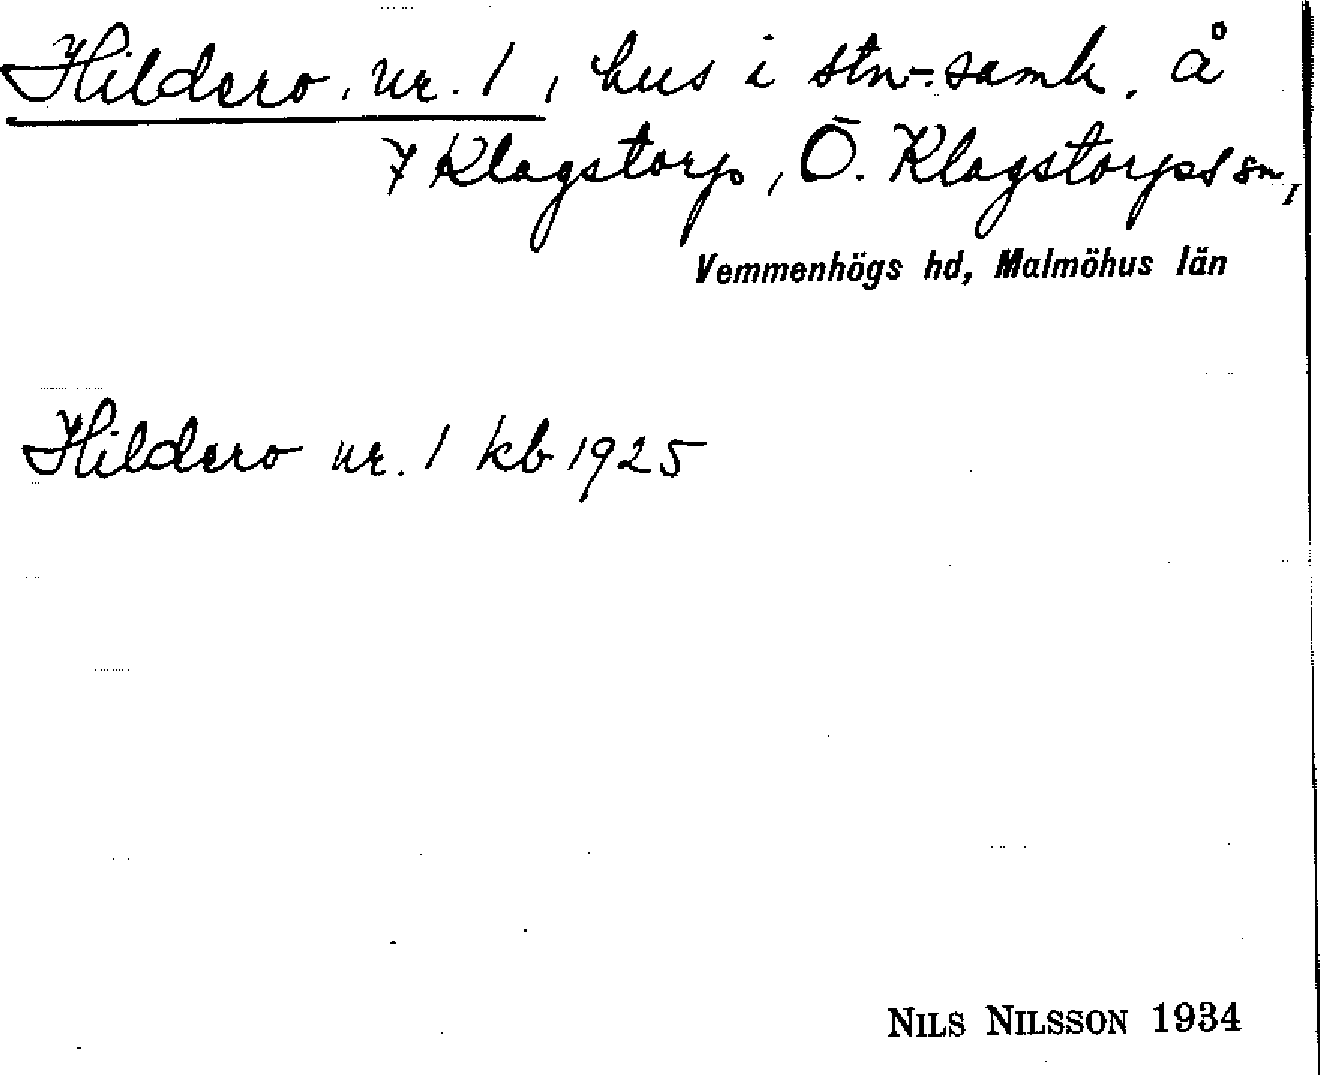 Hildero, nr. 1, hus i stn-samh. å
7 Klagstorp, Ö. Klagstorps sn,
Vemmenhögs hd, Malmöhus län
Hildero nr. 1 kb 1925
NILS NILSSON 1934